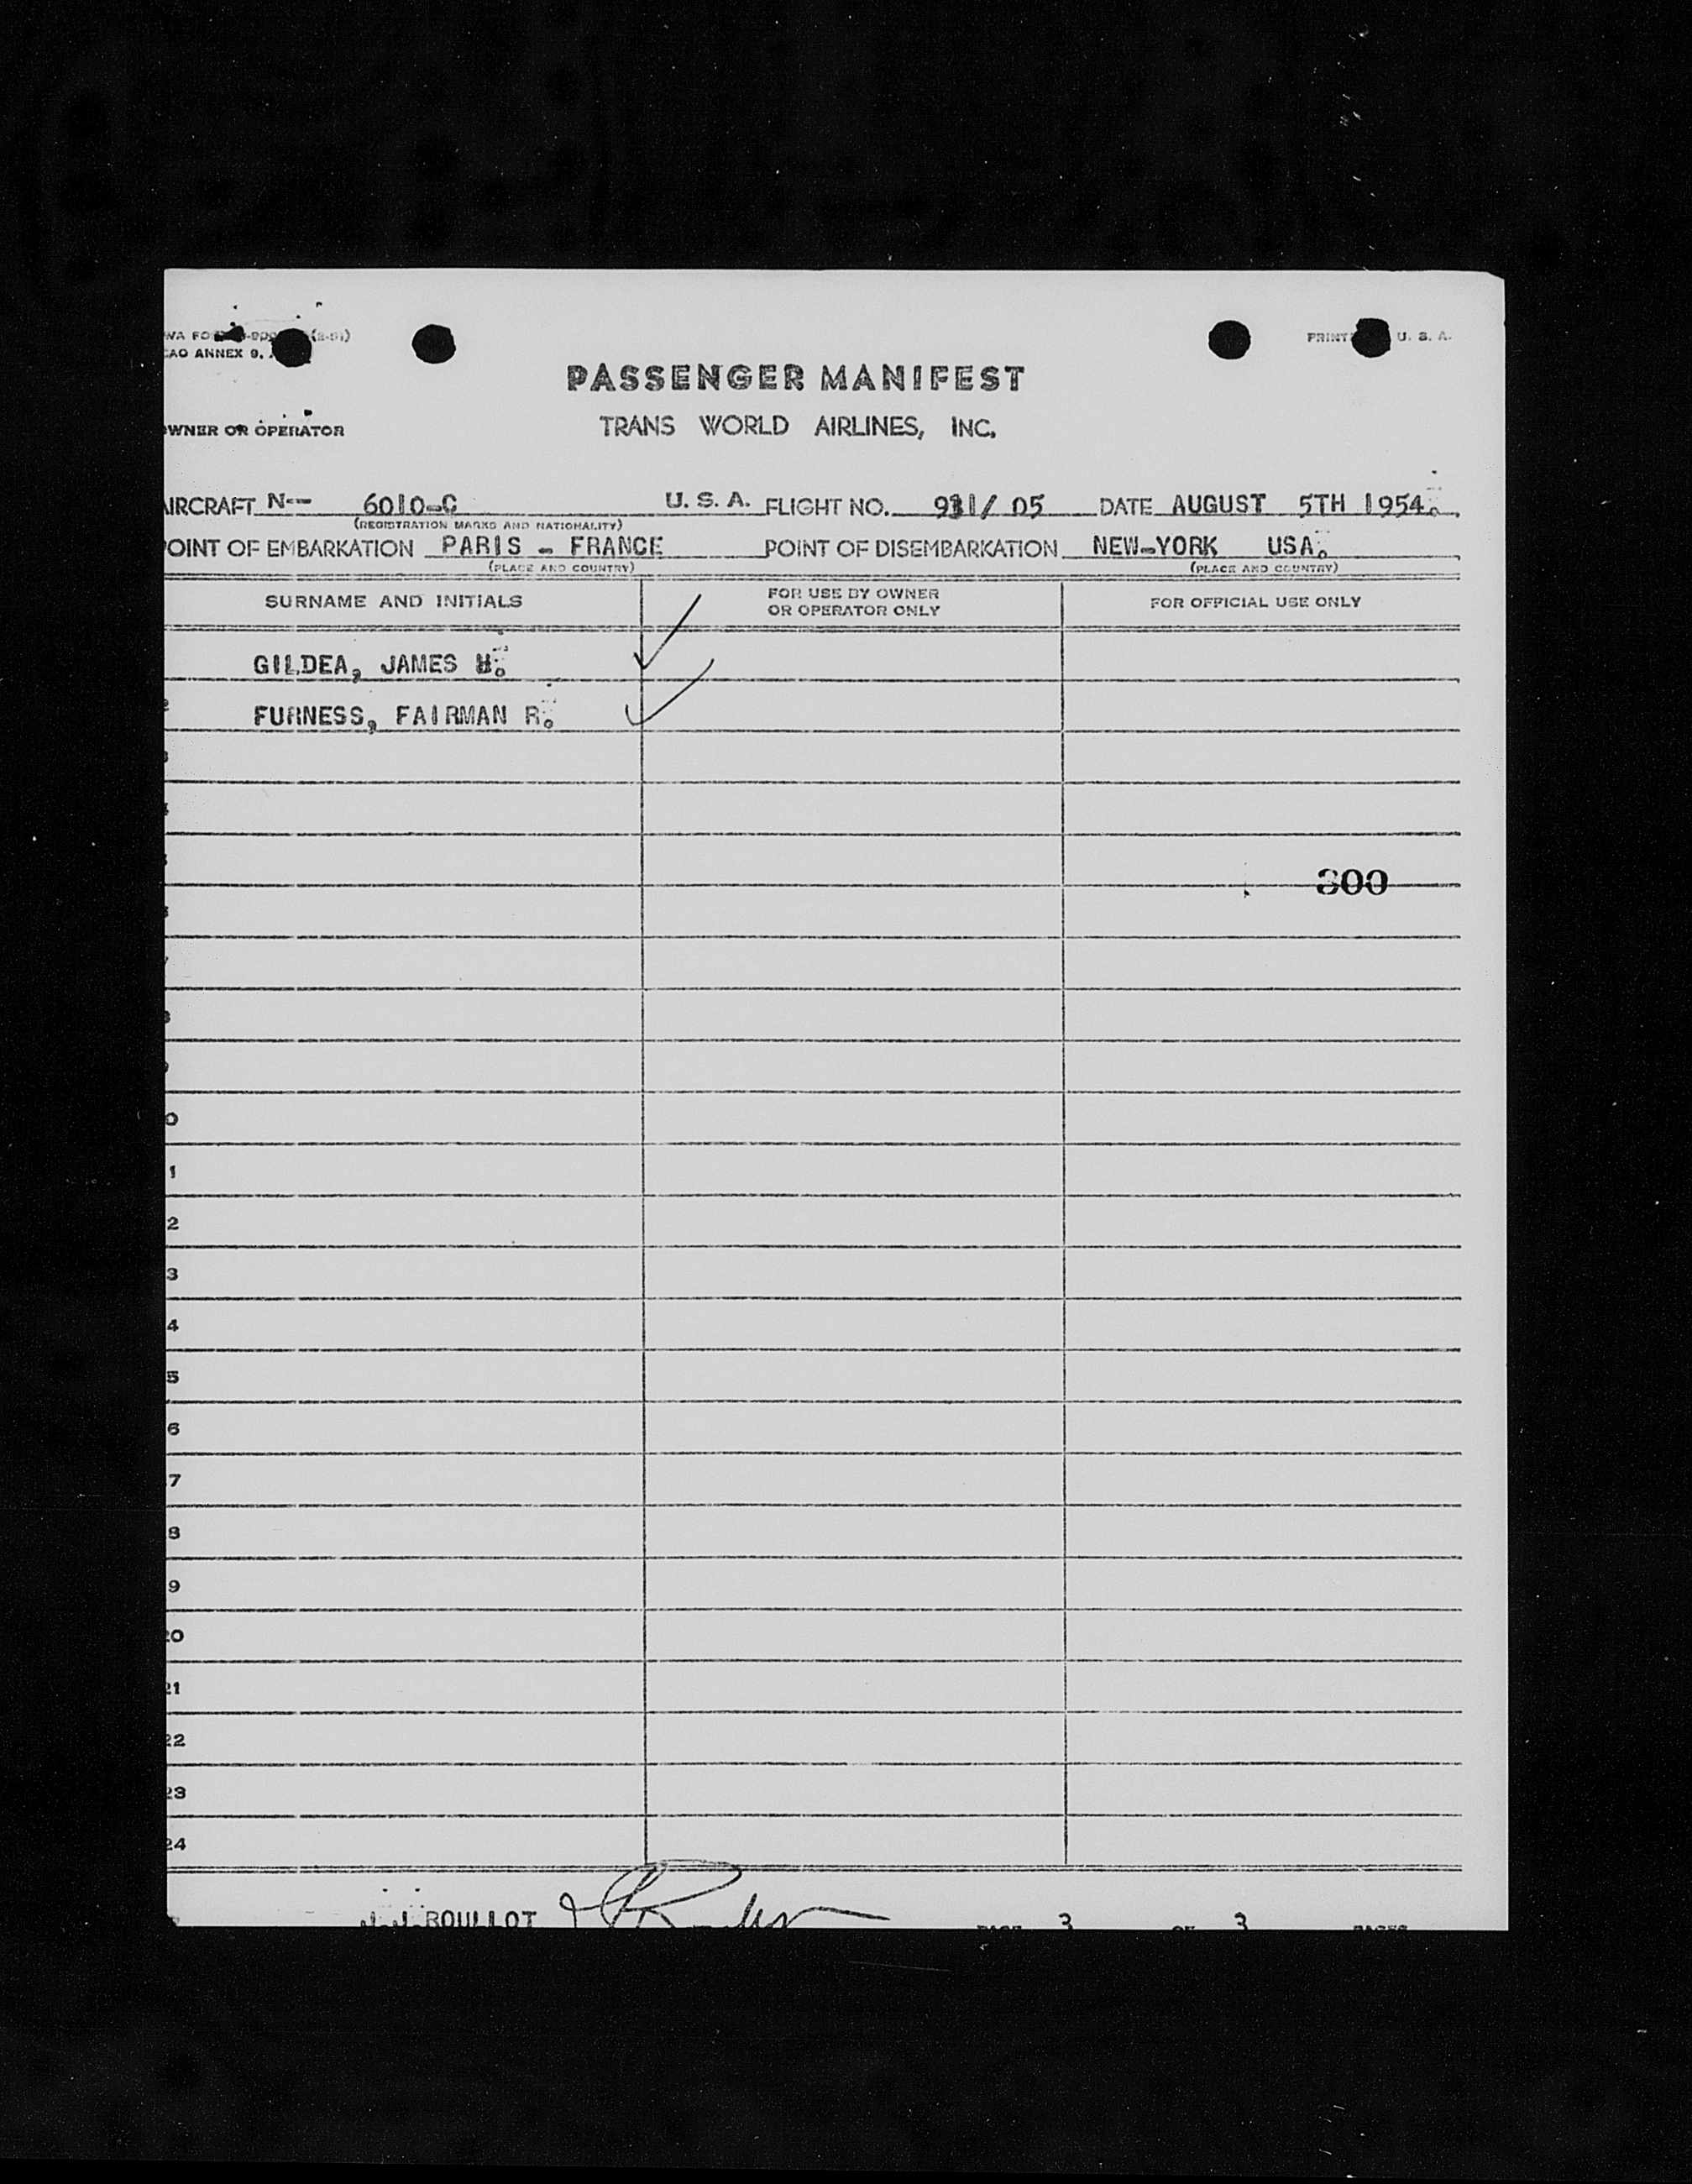 WA FO (2-51)
CAO ANNEX 9,
PRINT U. S. A.
PASSENGER MANIFEST
OWNER OR OPERATOR
TRANS WORLD AIRLINES, INC.
AIRCRAFT N-- 6010-C U. S. A. FLIGHT NO. 931/ 05 DATE AUGUST 5TH 1954.
(REGISTRATION MARKS AND NATIONALITY)
POINT OF EMBARKATION PARIS - FRANCE POINT OF DISEMBARKATION NEW-YORK USA.
(PLACE AND COUNTRY) (PLACE AND COUNTRY)
SURNAME AND INITIALS FOR USE BY OWNER OR OPERATOR ONLY FOR OFFICIAL USE ONLY
GILDEA, JAMES H.
2 FURNESS, FAIRMAN R.
3
4
5
300
6
7
8
9
0
1
2
3
4
5
6
7
8
9
20
21
22
23
24
J.J.ROULLOT PAGE 3 OF 3 PAGES